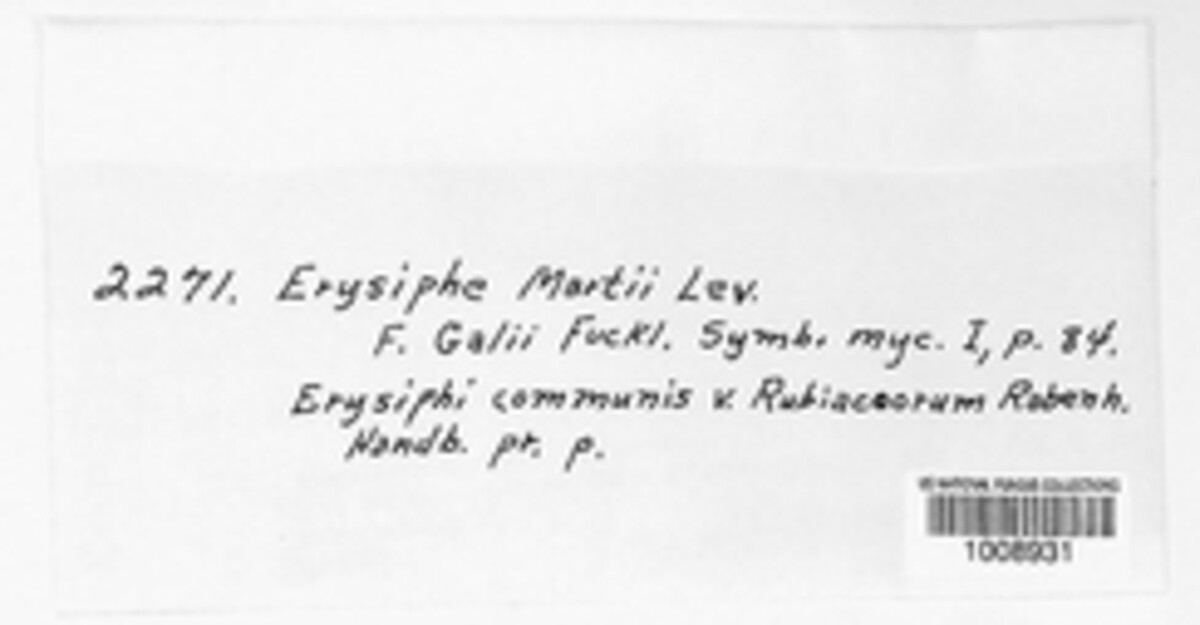 2271. Erysiphe Martii Lev.
F. Galii Fuckl. Symb. myc. I, p. 84.
Erysiphi communis v. Rubiaceorum Rabenh.
Handb. pr. p.
US NATIONAL FUNGUS COLLECTIONS
1008931